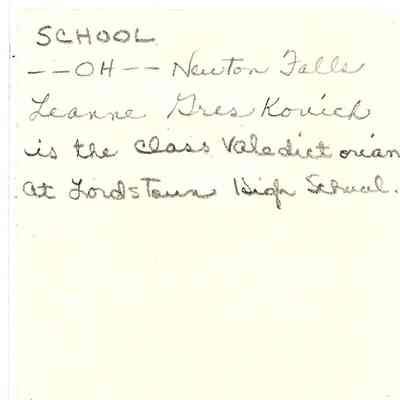 SCHOOL
--OH-- Newton Falls
Leanne Gres Kovich
is the class Valedictorian
at Lordstown High School.